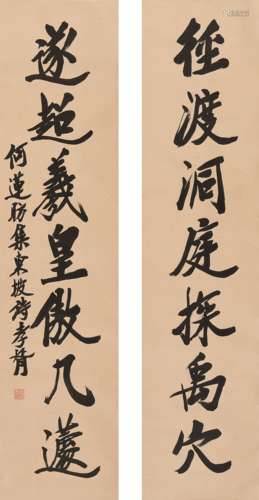 徑渡洞庭探禹穴
遂超羲皇傲几蘧
何蓮舫集東坡詩孝胥